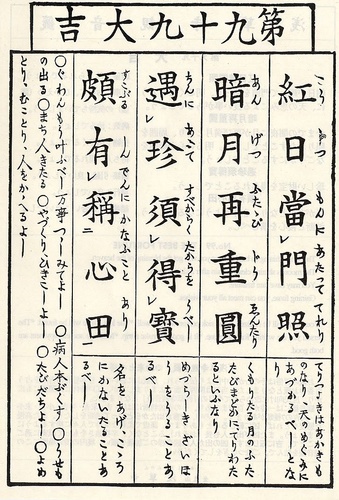 第九十九大吉
紅日當レ門照
こう じつ もんに あたつて てれり
てりつよきはあかきも
のなり、天のめぐみに
あづかるべしとな
り
暗月再重圓
あん げつ ふたゝび ぢう ゑんたり
くもりたる月のふた
たびまどかにてりわた
るといふなり
遇レ珍須レ得レ寶
ちんに あふて すべからく たからを うべし
めづらしきざいほ
うをうることあ
るべし
頗有レ稱二心田一
すこぶる しんでんに かなふこと あり
名をあげ、こゝろ
にかないたることあ
るべし
○ぐわんもう叶ふべし 万事つゝしみてよし ○病人本ぶくす ○うせも
の出る ○まち人きたる ○やづくり、ひきこしよし ○たびだちよし ○よめ
とり、むことり、人をかゝへるよし